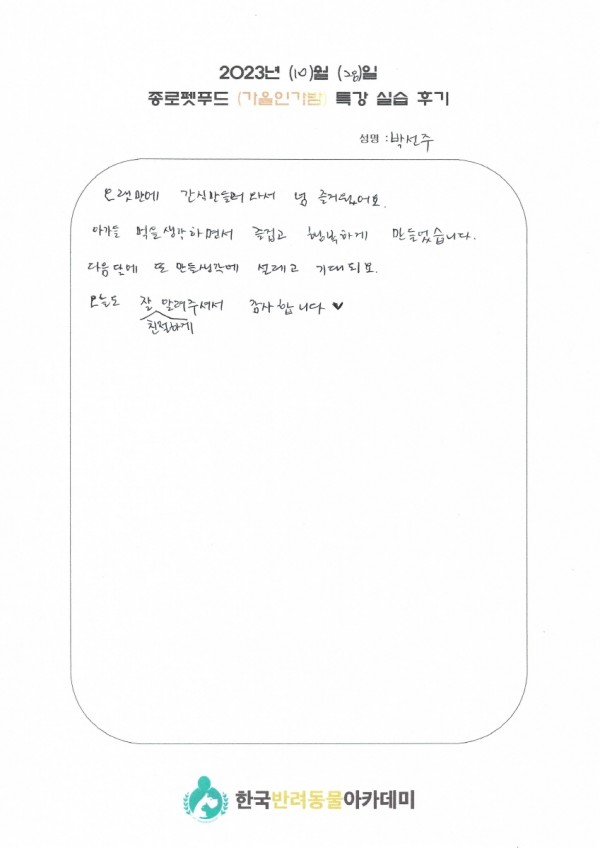 2023년 (10)월 (28)일
종로펫푸드 (가을인가봄) 특강 실습 후기
성명 : 박선주
오랫만에 간식만들러 와서 넘 즐거웠어요.
아가들 먹을생각하면서 즐겁고 행복하게 만들었습니다.
다음달에 또 만들생각에 설레고 기대되요.
오늘도 잘 알려주셔서 감사합니다 ♥
친절하게
한국반려동물아카데미